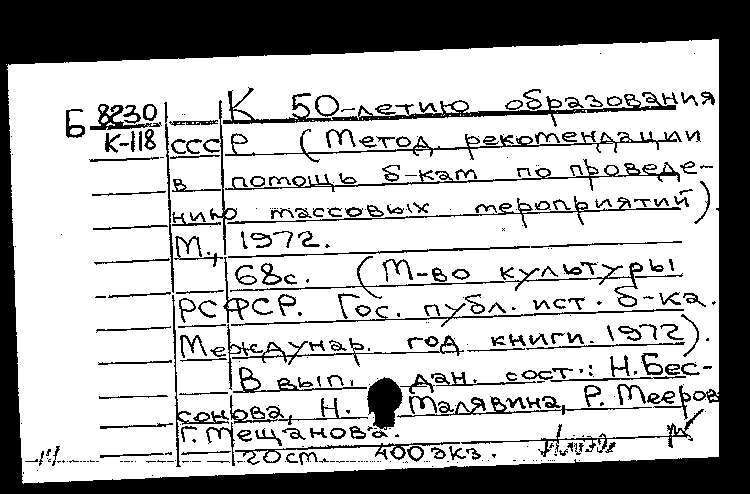 Б 8230
К-118
К 50-летию образования
СССР (Метод. рекомендации
в помощь б-кам по проведе-
нию массовых мероприятий).
М., 1972.
68с. (М-во культуры
РСФСР. Гос. публ. ист. б-ка.
Междунар. год книги. 1972).
В вып. дан. сост.: Н.Бес-
сонова, Н. Малявина, Р. Мееров
Г. Мещанова.
20 ст. 400 экз.